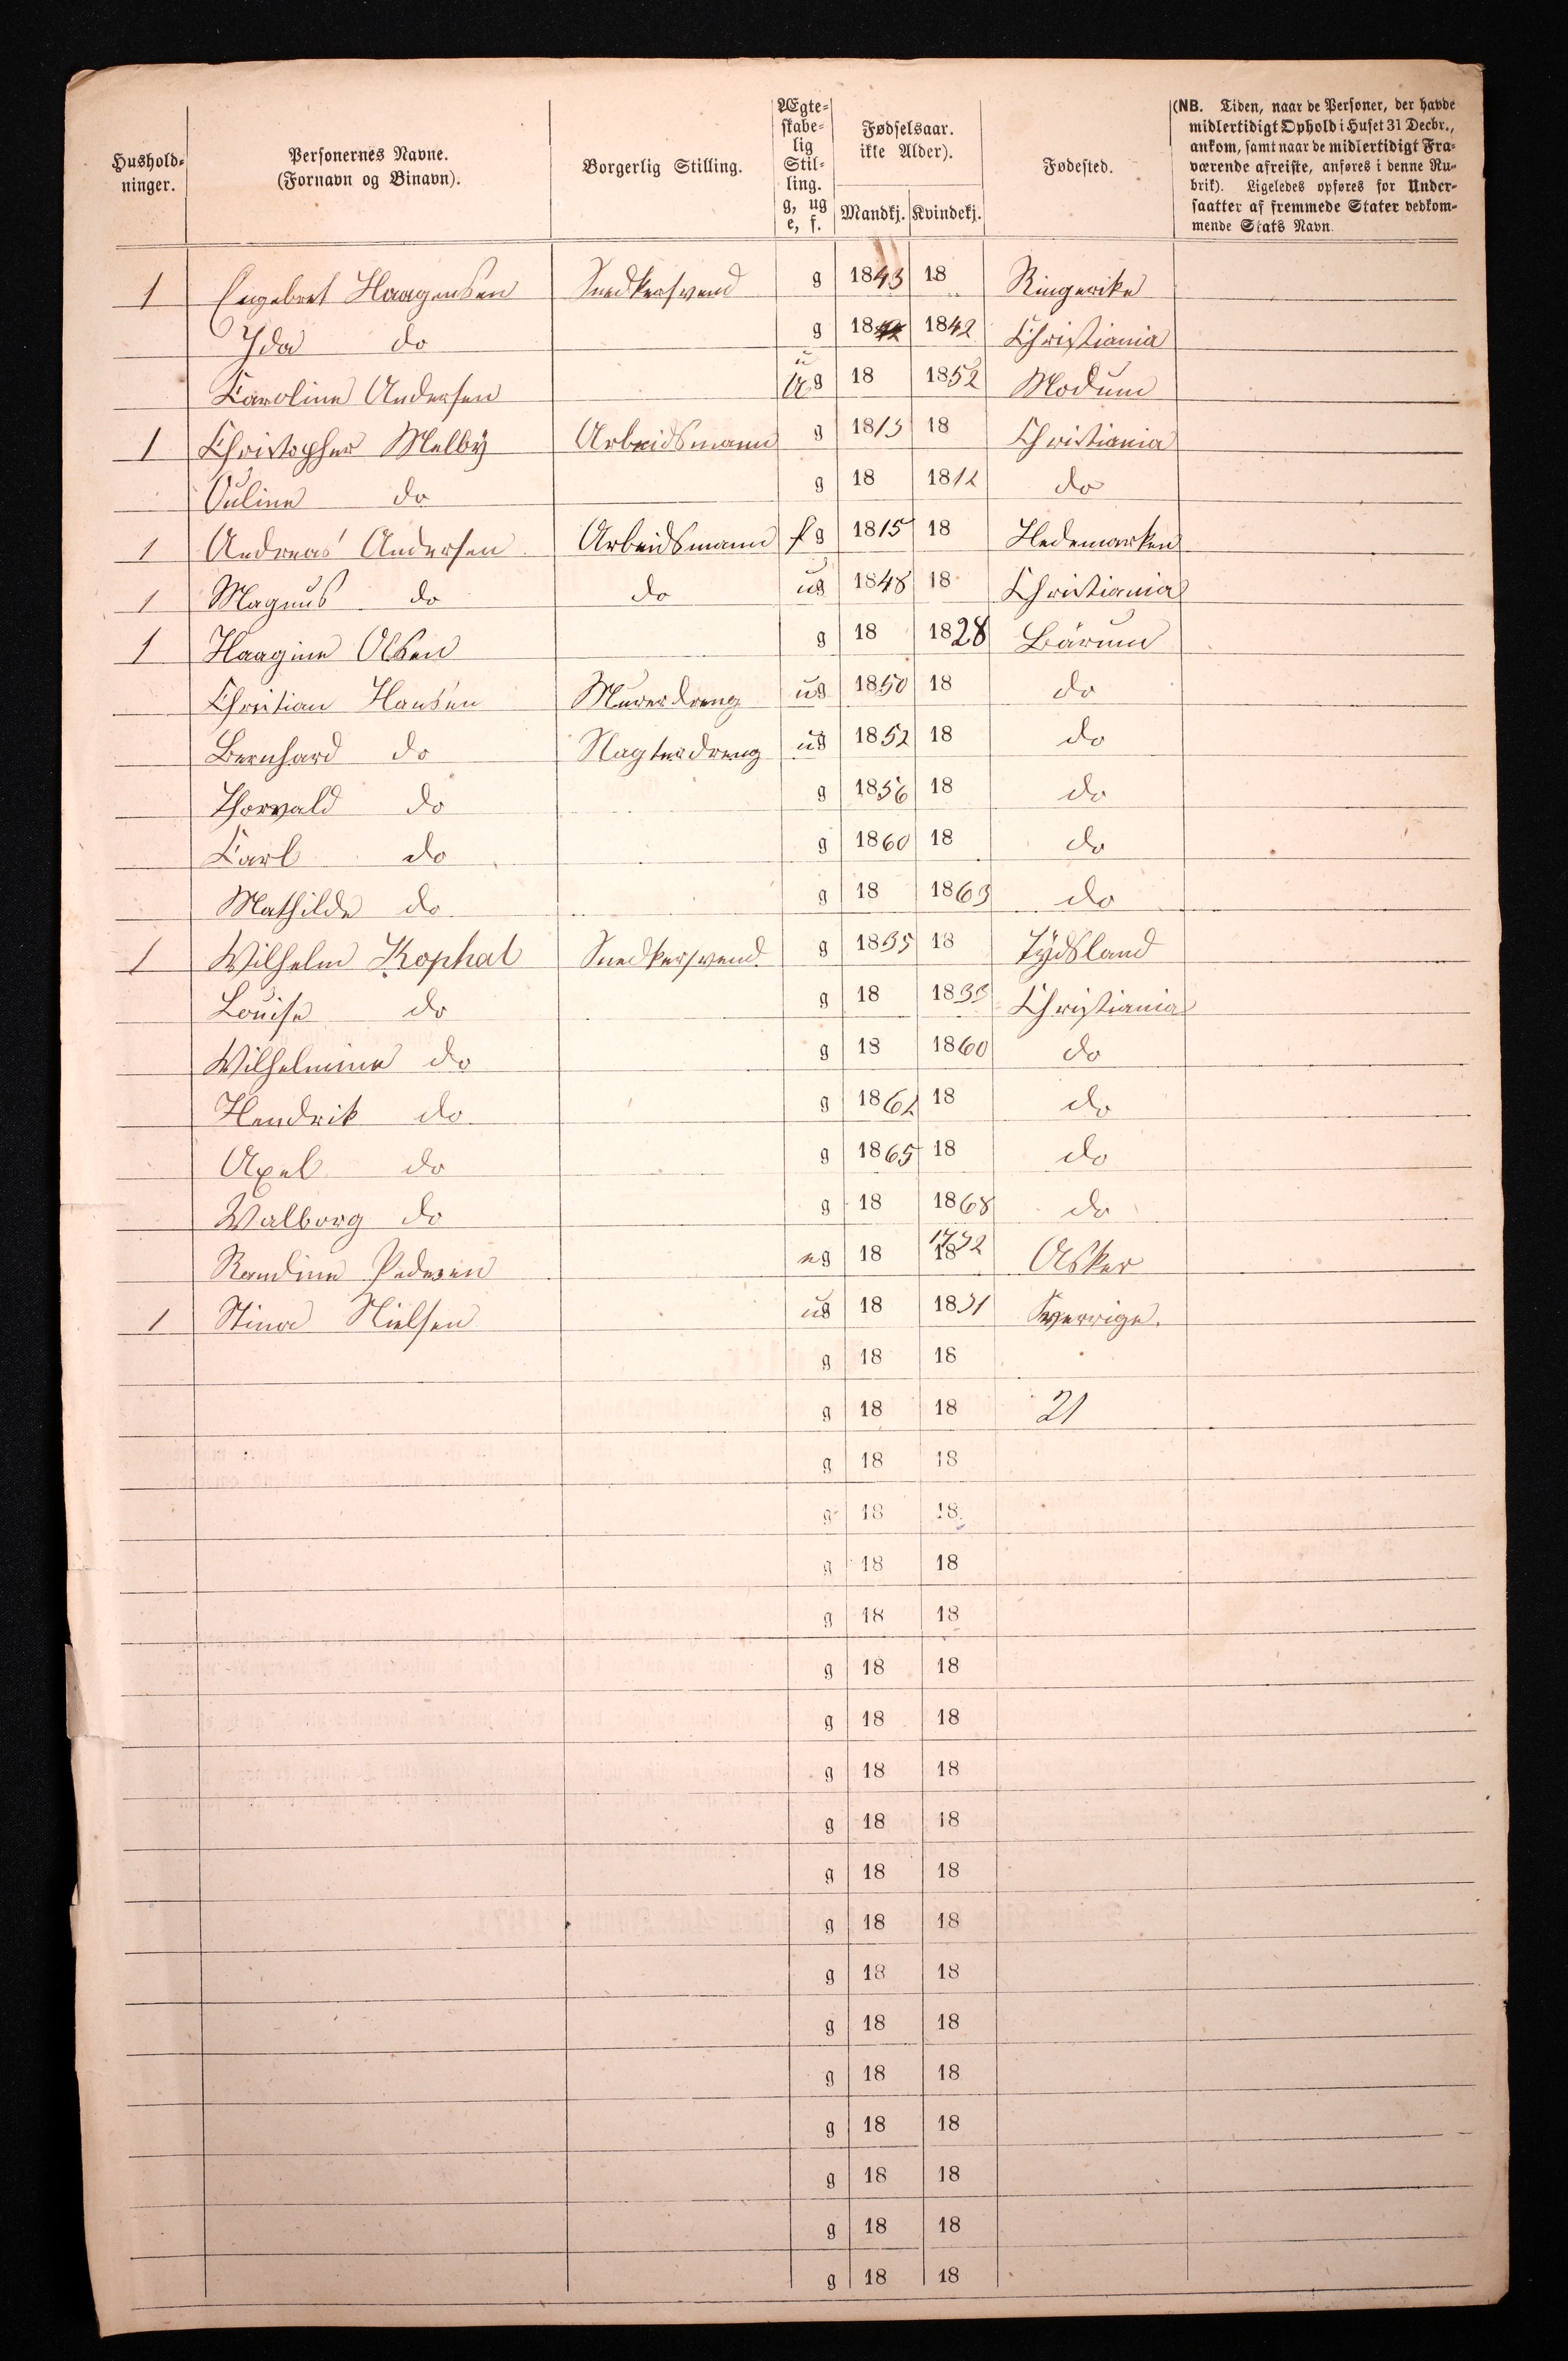 Hushold-
ninger.
Personernes Navne.
(Fornavn og Binavn).
Borgerlig Stilling.
Ægte-
skabe-
lig
Stil-
ling.
g, ug
e, f.
Fødselsaar.
ikke Alder).
Mandkj. Kvindekj.
Fødested.
(NB. Tiden, naar de Personer, der havde
midlertidigt Ophold i Huset 31 Decbr.,
ankom, samt naar de midlertidigt Fra-
værende afreiste, anføres i denne Ru-
brik). Ligeledes opføres for Under-
saatter af fremmede Stater vedkom-
mende Stats Navn.
1 Engebret Haagensen Snedkersvend g 1843 18 Ringerike
Ida do g 18 1842 Christiania
Karoline Andersen ug 18 1852 Modum
1 Christopher Melby Arbeidsmann g 1813 18 Christiania
do g 18 1812 do
1 Andreas Andersen Arbeidsmann fg 1815 18 Hedemarken
1 Magnus do do ug 1848 18 Christiania
1 Haagine Olsen g 18 1828 Bärum
Christian Hansen Murerdreng ug 1850 18 do
Bernhard do Slagterdreng ug 1852 18 do
Thorvald do g 1856 18 do
Karl do g 1860 18 do
Mathilde do g 18 1863 do
1 Wilhelm Kophal Snedkersvend g 1835 18 Tydsland
Louise do g 18 1833 Christiania
Wilhelmine do g 18 1860 do
Hendrik do g 1862 18 do
Axel do g 1865 18 do
Walborg do g 18 1868 do
Randine Pedersen eg 18 18 1792 Asker
1 Stina Nielsen ug 18 1831 Sverrige.
g 18 18
g 18 18 21
g 18 18
g 18 18
g 18 18
g 18 18
g 18 18
g 18 18
g 18 18
g 18 18
g 18 18
g 18 18
g 18 18
g 18 18
g 18 18
g 18 18
g 18 18
g 18 18
g 18 18